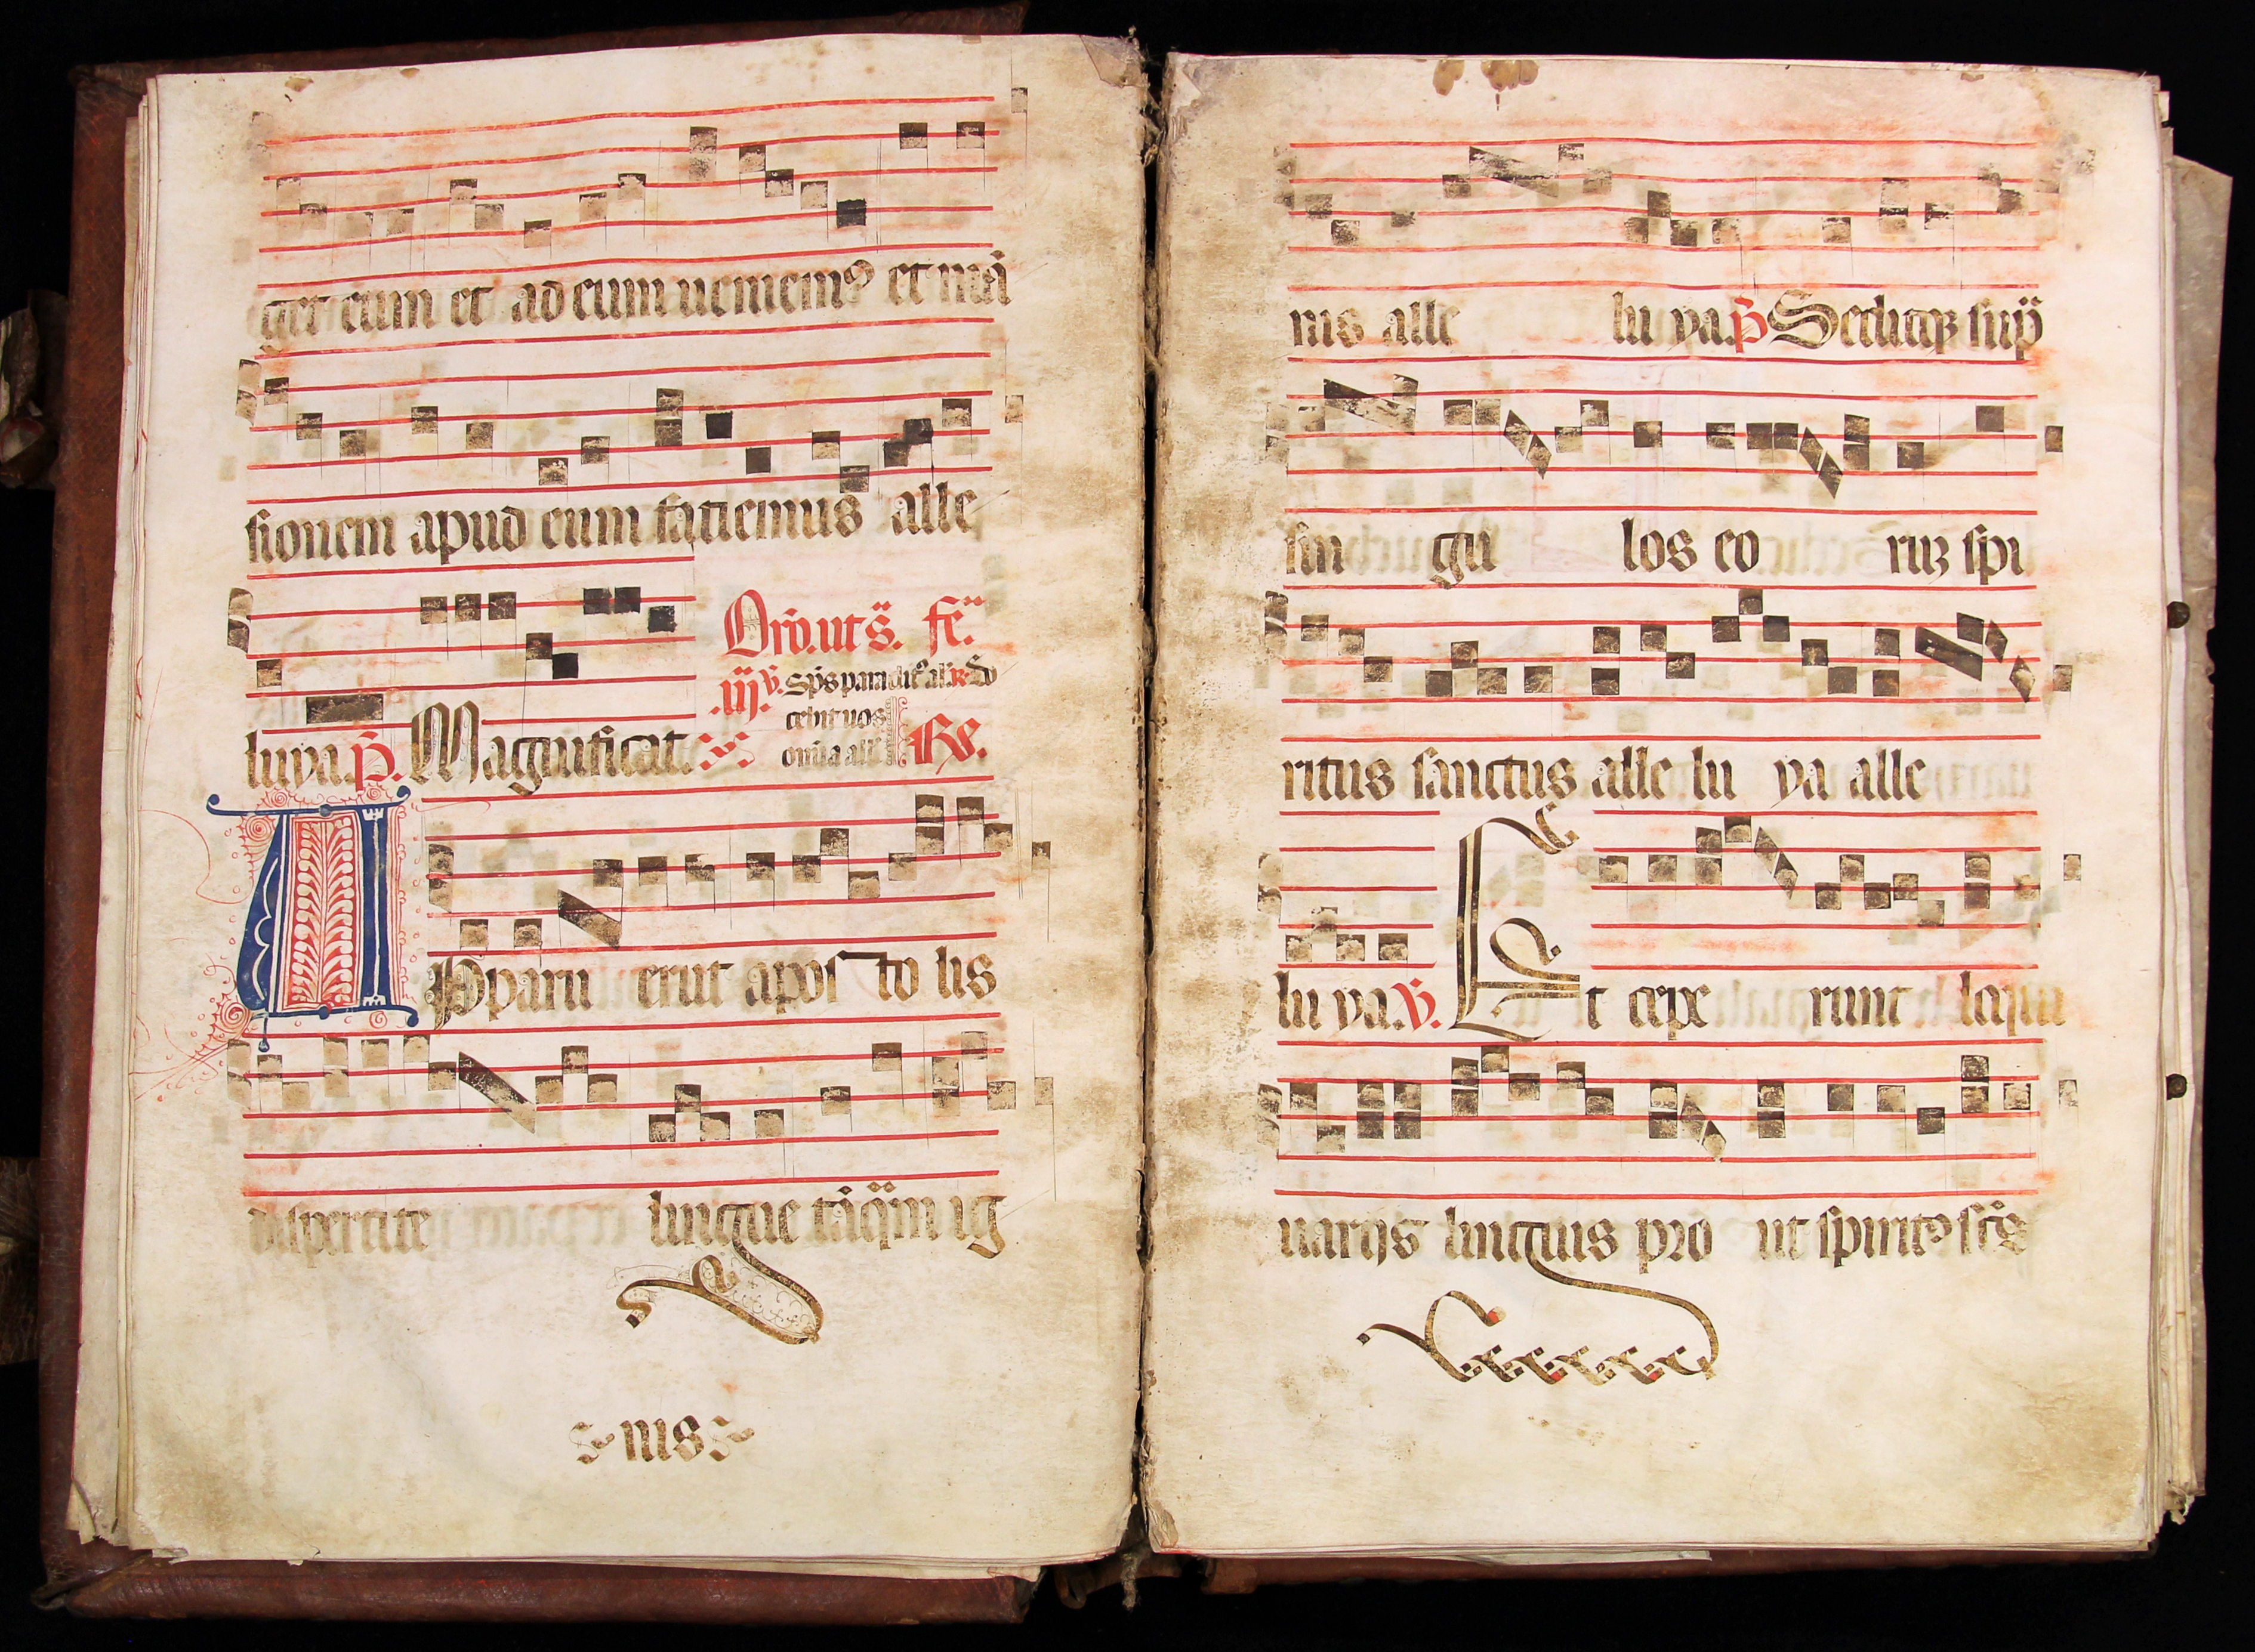 get eum et ad eum ueniemꝰ et mã
sionem apud eum fatiemus alle
luya. p̃. Magnificat.
Orõ. ut s̃. fe.
.iij. v̄. Sp̃s paraclitꝰ al'a. R. Do
cebit uos
omĩa all'a Re.
APparu erũt apos to lis
dispertite lingue tãq̃m ig
nis
nis alle lu ya. p̃ Seditqꝫ sup̃
sin gu los eo ruꝫ spi
ritus sanctus alle lu ya alle
lu ya. v̄. Et cepe runt loqui
uarijs linguis pro ut spiritꝰ sct̃s